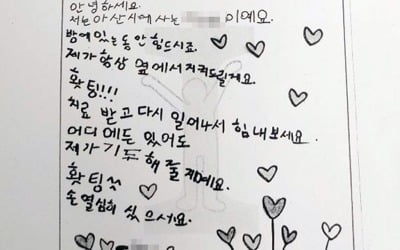 안녕하세요.
저는 아산시에 사는 이예요.
방에 있는 동안 힘드시죠.
제가 항상 옆에서 지켜드릴게요.
홧팅!!!
치료 받고 다시 일어나서 힘내보세요.
어디에든 있어도
제가 기도해 줄게예요.
홧팅
손 열심히 싰으서요.